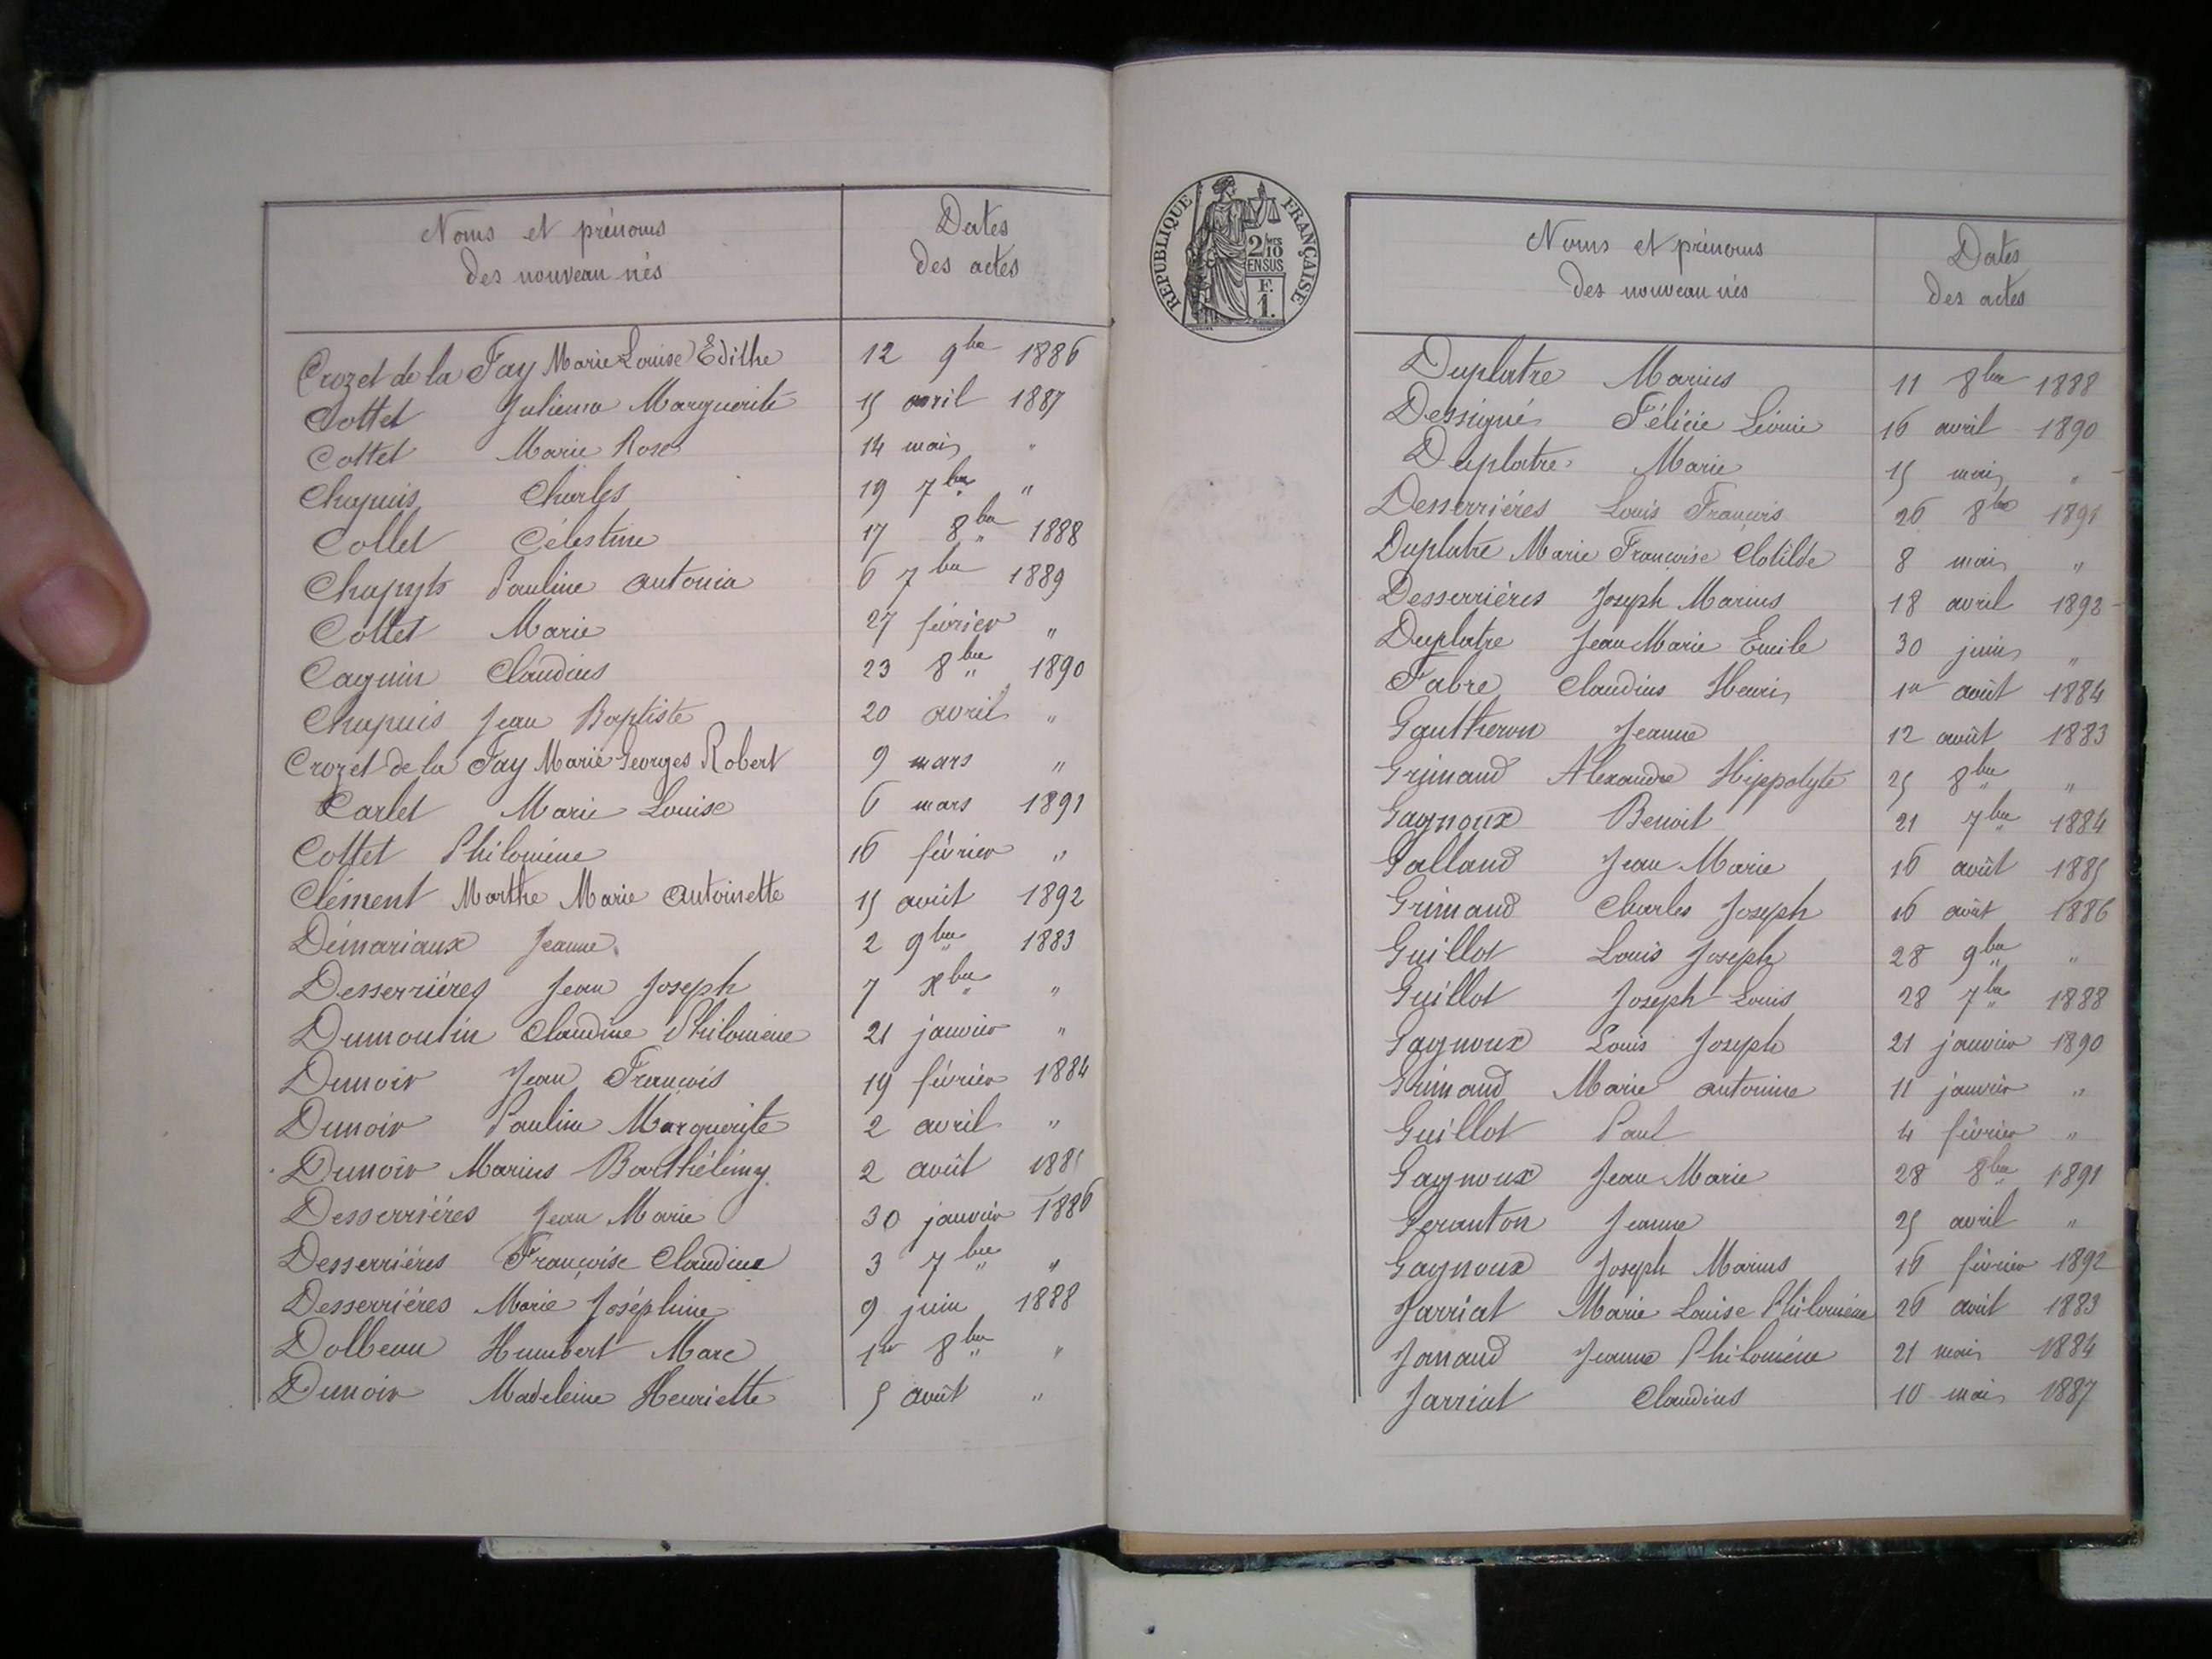 Noms et prénoms
des nouveau nés
Dates
des actes
Crozet de la Fay Marie Louise Edithe 12 9bre 1886
Cottet Juliema Marguerite 15 avril 1887
Cottet Marie Rose 14 mai "
Chapuis Charles 19 7bre "
Collet Célestine 17 8bre 1888
Chapuis Pauline Antonia 6 7bre 1889
Cottet Marie 27 février "
Cagnin Claudius 23 8bre 1890
Chapuis Jean Baptiste 20 avril "
Crozet de la Fay Marie Georges Robert 9 mars "
Carlet Marie Louise 6 mars 1891
Cottet Philomène 16 février "
Clément Marthe Marie Antoinette 15 août 1892
Démariaux Jeanne 2 9bre 1883
Desserriéres Jean Joseph 7 Xbre "
Dumoulin Claudine Philomène 21 janvier "
Dunoir Jean François 19 février 1884
Dunoir Pauline Marguerite 2 avril "
Dunoir Marius Barthélémy 2 août 1885
Desserriéres Jean Marie 30 janvier 1886
Desserriéres Françoise Claudine 3 7bre "
Desserriéres Marie Joséphine 9 juin 1888
Dolbeau Humbert Marc 1er 8bre "
Dunoir Madeleine Henriette 5 août "
REPUBLIQUE FRANÇAISE
2/10 MES
EN SUS
F.
1.
Noms et prénoms
des nouveau nés
Dates
des actes
Duplatre Marius 11 8bre 1888
Dessigné Félicie Léonie 16 avril 1890
Duplatre Marie 15 mai "
Desserriéres Louis François 26 8bre 1891
Duplatre Marie Françoise Clotilde 8 mai "
Desserriéres Joseph Marius 18 avril 1892
Duplatre Jean Marie Emile 30 juin "
Fabre Claudius Henri 1er août 1884
Gautheron Jeanne 12 août 1883
Grimaud Alexandre Hippolyte 25 8bre "
Gagnoux Benoit 21 7bre 1884
Galland Jean Marie 16 août 1885
Grimaud Charles Joseph 16 août 1886
Guillot Louis Joseph 28 9bre "
Guillot Joseph Louis 28 7bre 1888
Gagnoux Louis Joseph 21 janvier 1890
Grimaud Marie Antonine 11 janvier "
Guillot Paul 4 février "
Gagnoux Jean Marie 28 8bre 1891
Geranton Jeanne 25 avril "
Gagnoux Joseph Marius 16 février 1892
Jarriat Marie Louise Philomène 26 août 1883
Janaud Jeanne Philomène 21 mai 1884
Jarriat Claudius 10 mai 1887